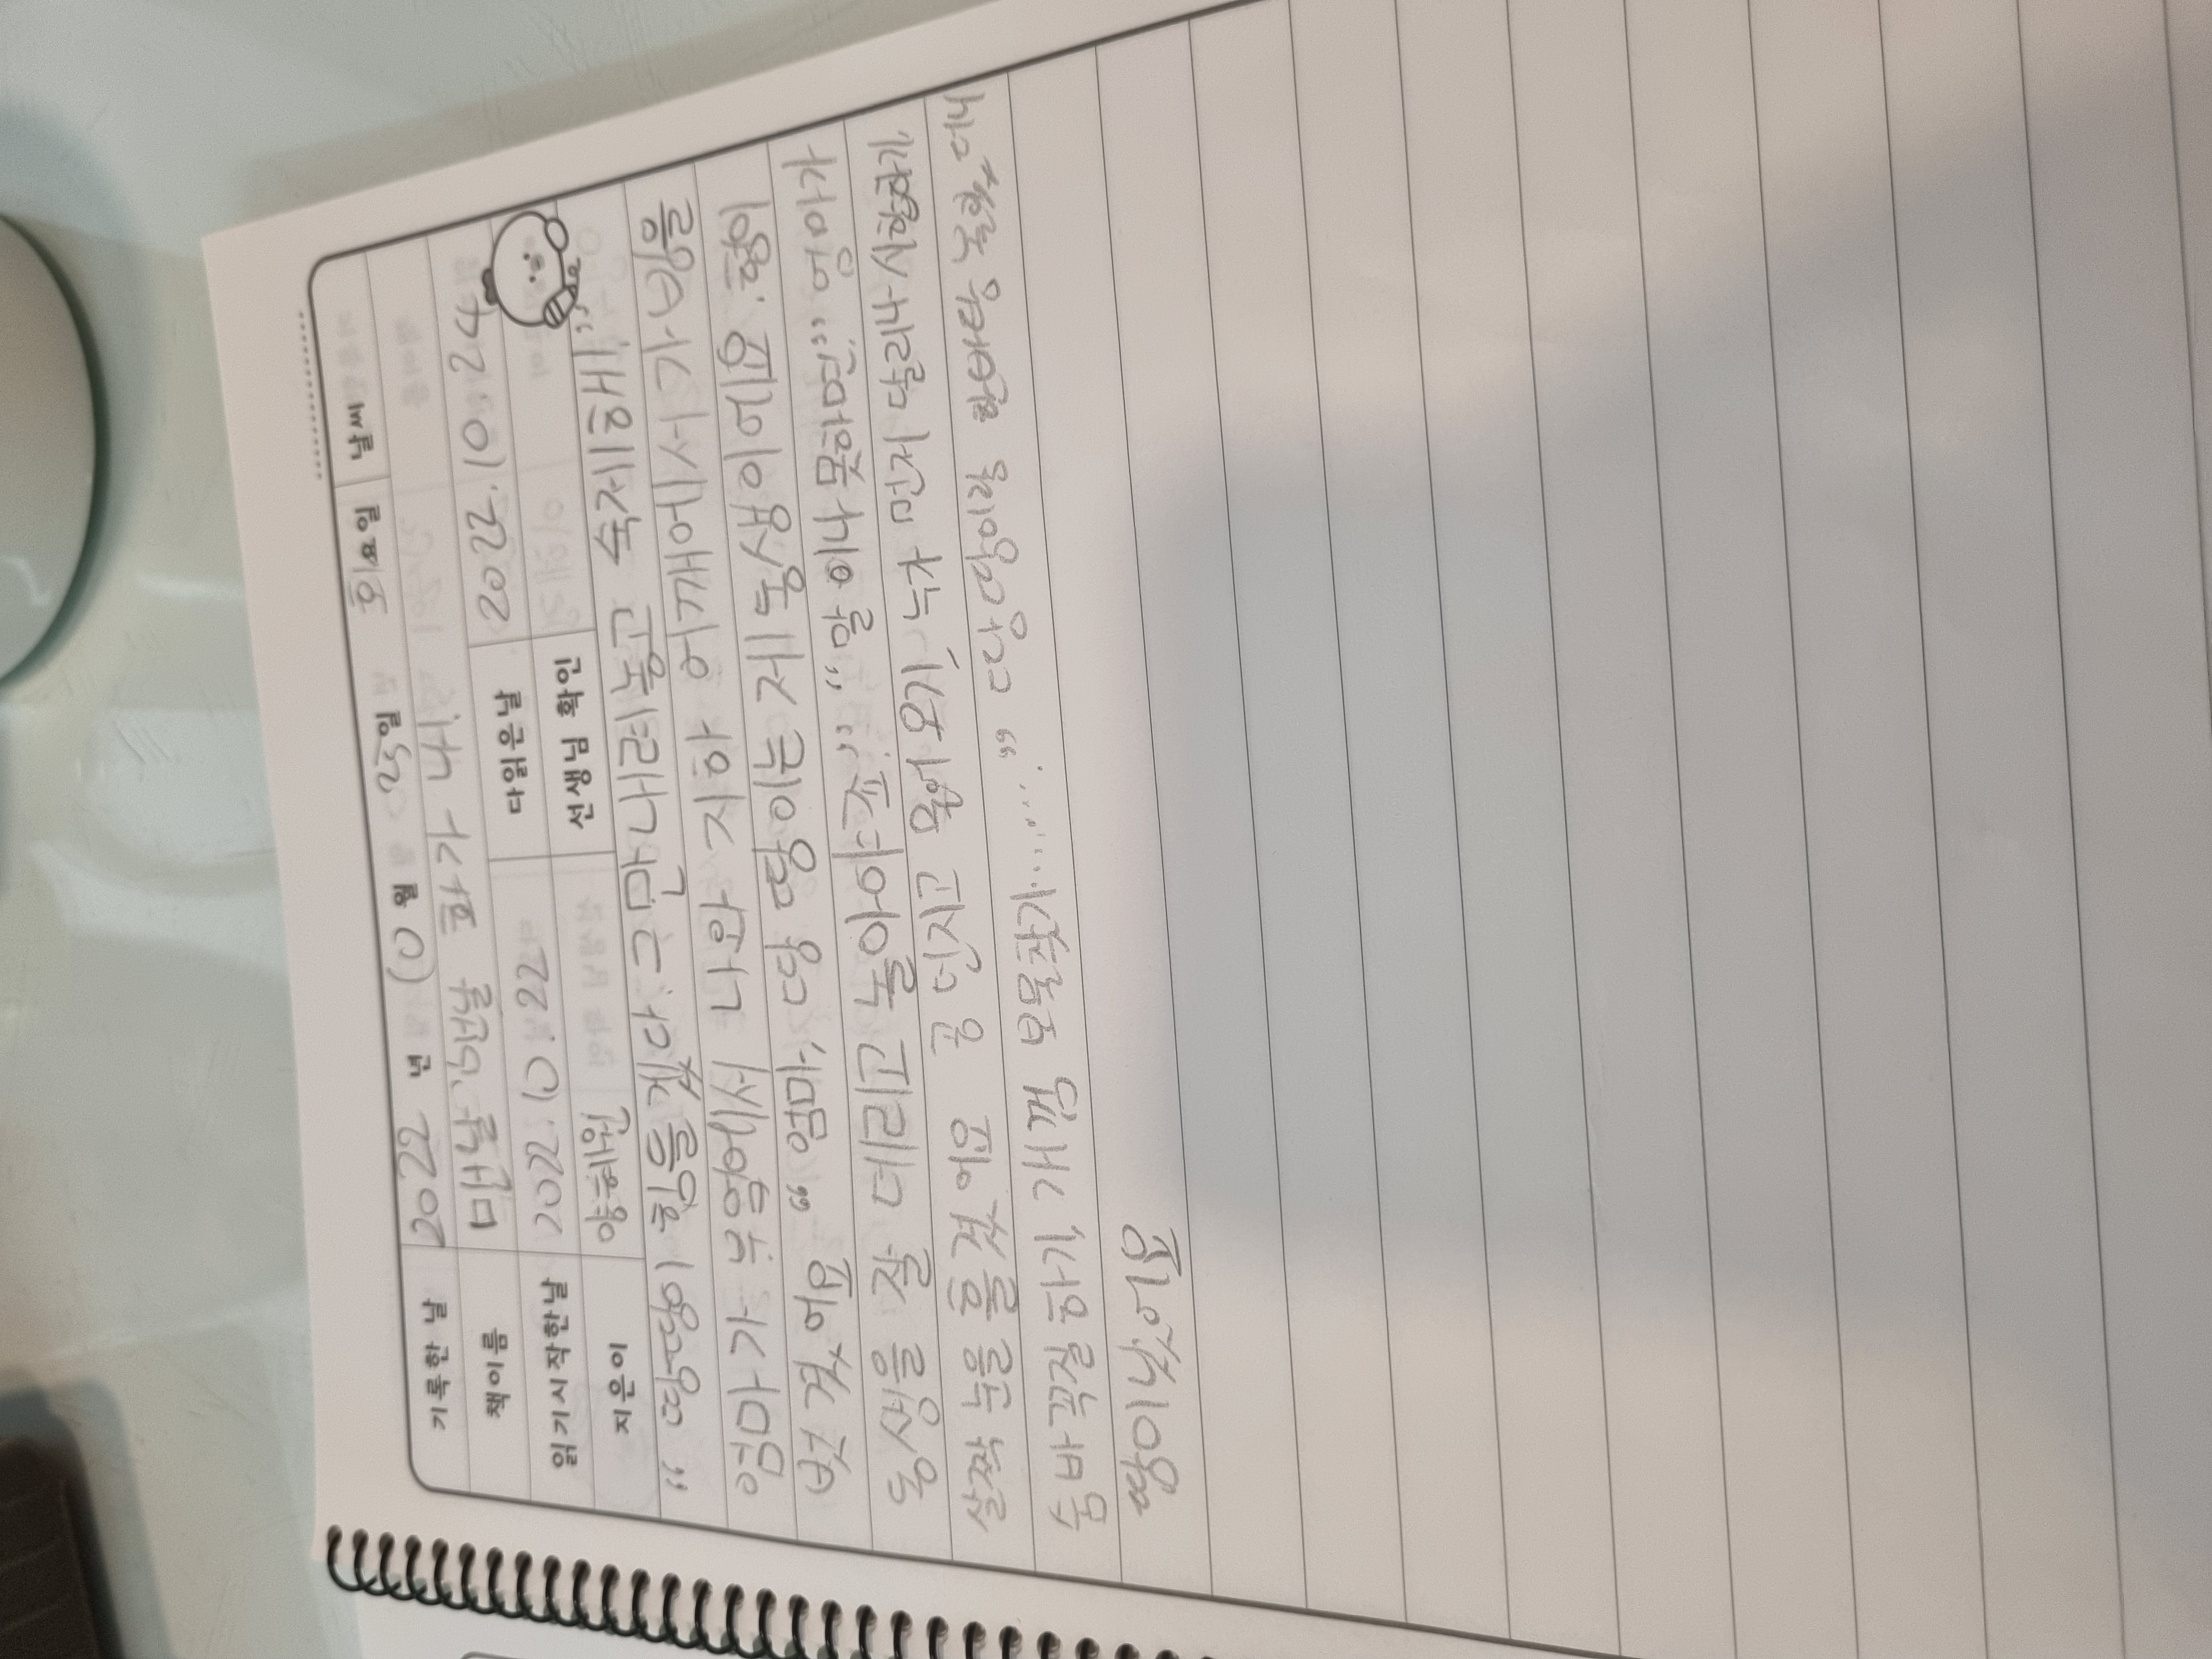 기록한 날 2022 년 10 월 25일 화요일 날씨
책이름 맨날 맨날 화가 나!
읽기시작한날 2022.10.22 다읽은날 2022.10.24
지은이 양혜원 선생님 확인
“ 땅땅이 힘들겠다. 그만 내려놓고 숙제해!”
엄마가 부엌에서 나와 지하 어깨에서 가방을
벗겼어요 “ 엄마, 땅땅이는 제 동생이에요. 형이
동생을 잘 데리고 놀아야죠.” “말이나 못하면.” 엄마가
살짝 눈을 흘겼어요 공 던지고 물어오기, 누가 먼저 달리나 시합하기,
숨바꼭질 하기, 개껌 보물찾기.......” 땅땅이랑 한바탕 놀았더니
땅이 났어요